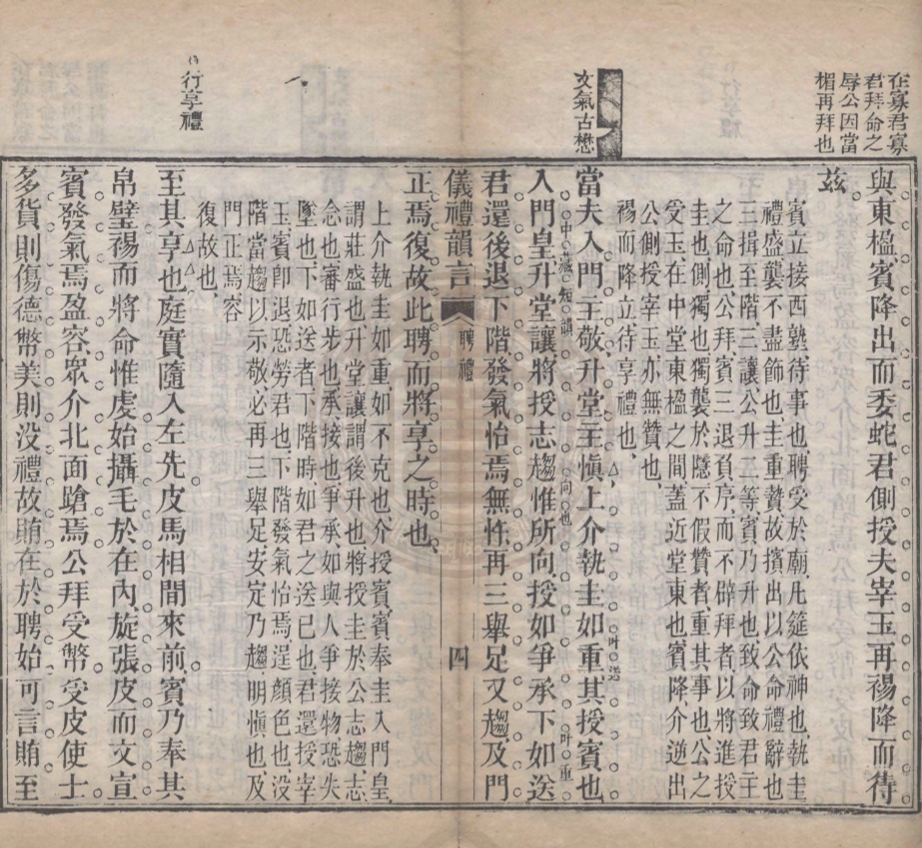 在寡君寡
君拜命之
辱公因當
楣再拜也
與東楹賓降出而委蛇君側授夫宰玉再裼降而待
茲
賓立接西塾待事也聘受於廟几筵依神也執圭
禮盛襲不盡飾也圭重贄故擯出以公命禮辭也
三揖至階三讓公升二等賓乃升也致命致君主
之命也公拜賓三退負序而不辟拜者以將進授
圭也側獨也獨襲於隱不假贊者重其事也公之
受玉在中堂東楹之間蓋近堂東也賓降介逆出
公側授宰玉亦無贊也
裼而降立待享禮也
文氣古懋
當夫入門主敬升堂主愼上介執圭如重其授賓也
入門皇升堂讓將授志趨惟所向授如爭承下如送
君還後退下階發氣怡焉無忤再三舉足又趨及門
儀禮韻言 聘禮 四
正焉復故此聘而將享之時也
上介執圭如重如不克也介授賓賓奉圭入門皇
謂莊盛也升堂讓謂後升也將授圭於公志趨志
念也審行步也承接也爭承如與人爭接物恐失
墜也下如送者下階時如君之送已也君還授宰
玉賓卽退恐勞君也下階發氣怡焉逞顏色也没
階當趨以示敬必再三舉足安定乃趨明愼也及
門正焉容
復故也
行享禮
至其享也庭實隨入左先皮馬相間來前賓乃奉其
帛璧裼而將命惟處始攝毛於在內旋張皮而文宣
賓發氣焉盈容眾介北面蹌焉公拜受幣受皮使士
多貨則傷德幣美則没禮故賄在於聘始可言賄至